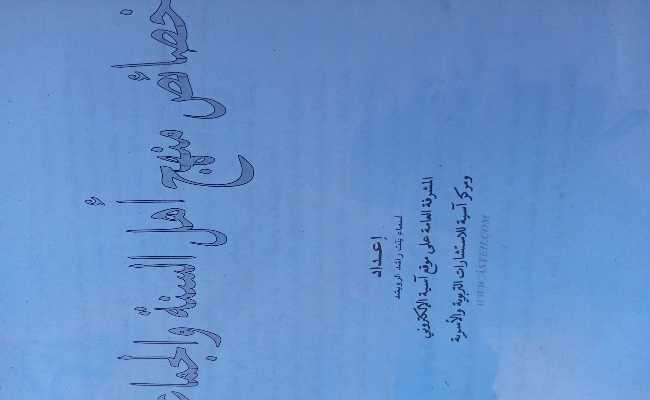 خصائص منهج أهل السنة والجماعة
إعداد
أسماء بنت راشد الرويشد
المشرفة العامة على موقع آسية الإلكتروني
ومركز آسية للاستشارات التربوية والأسرية
WWW.ASYEH.COM